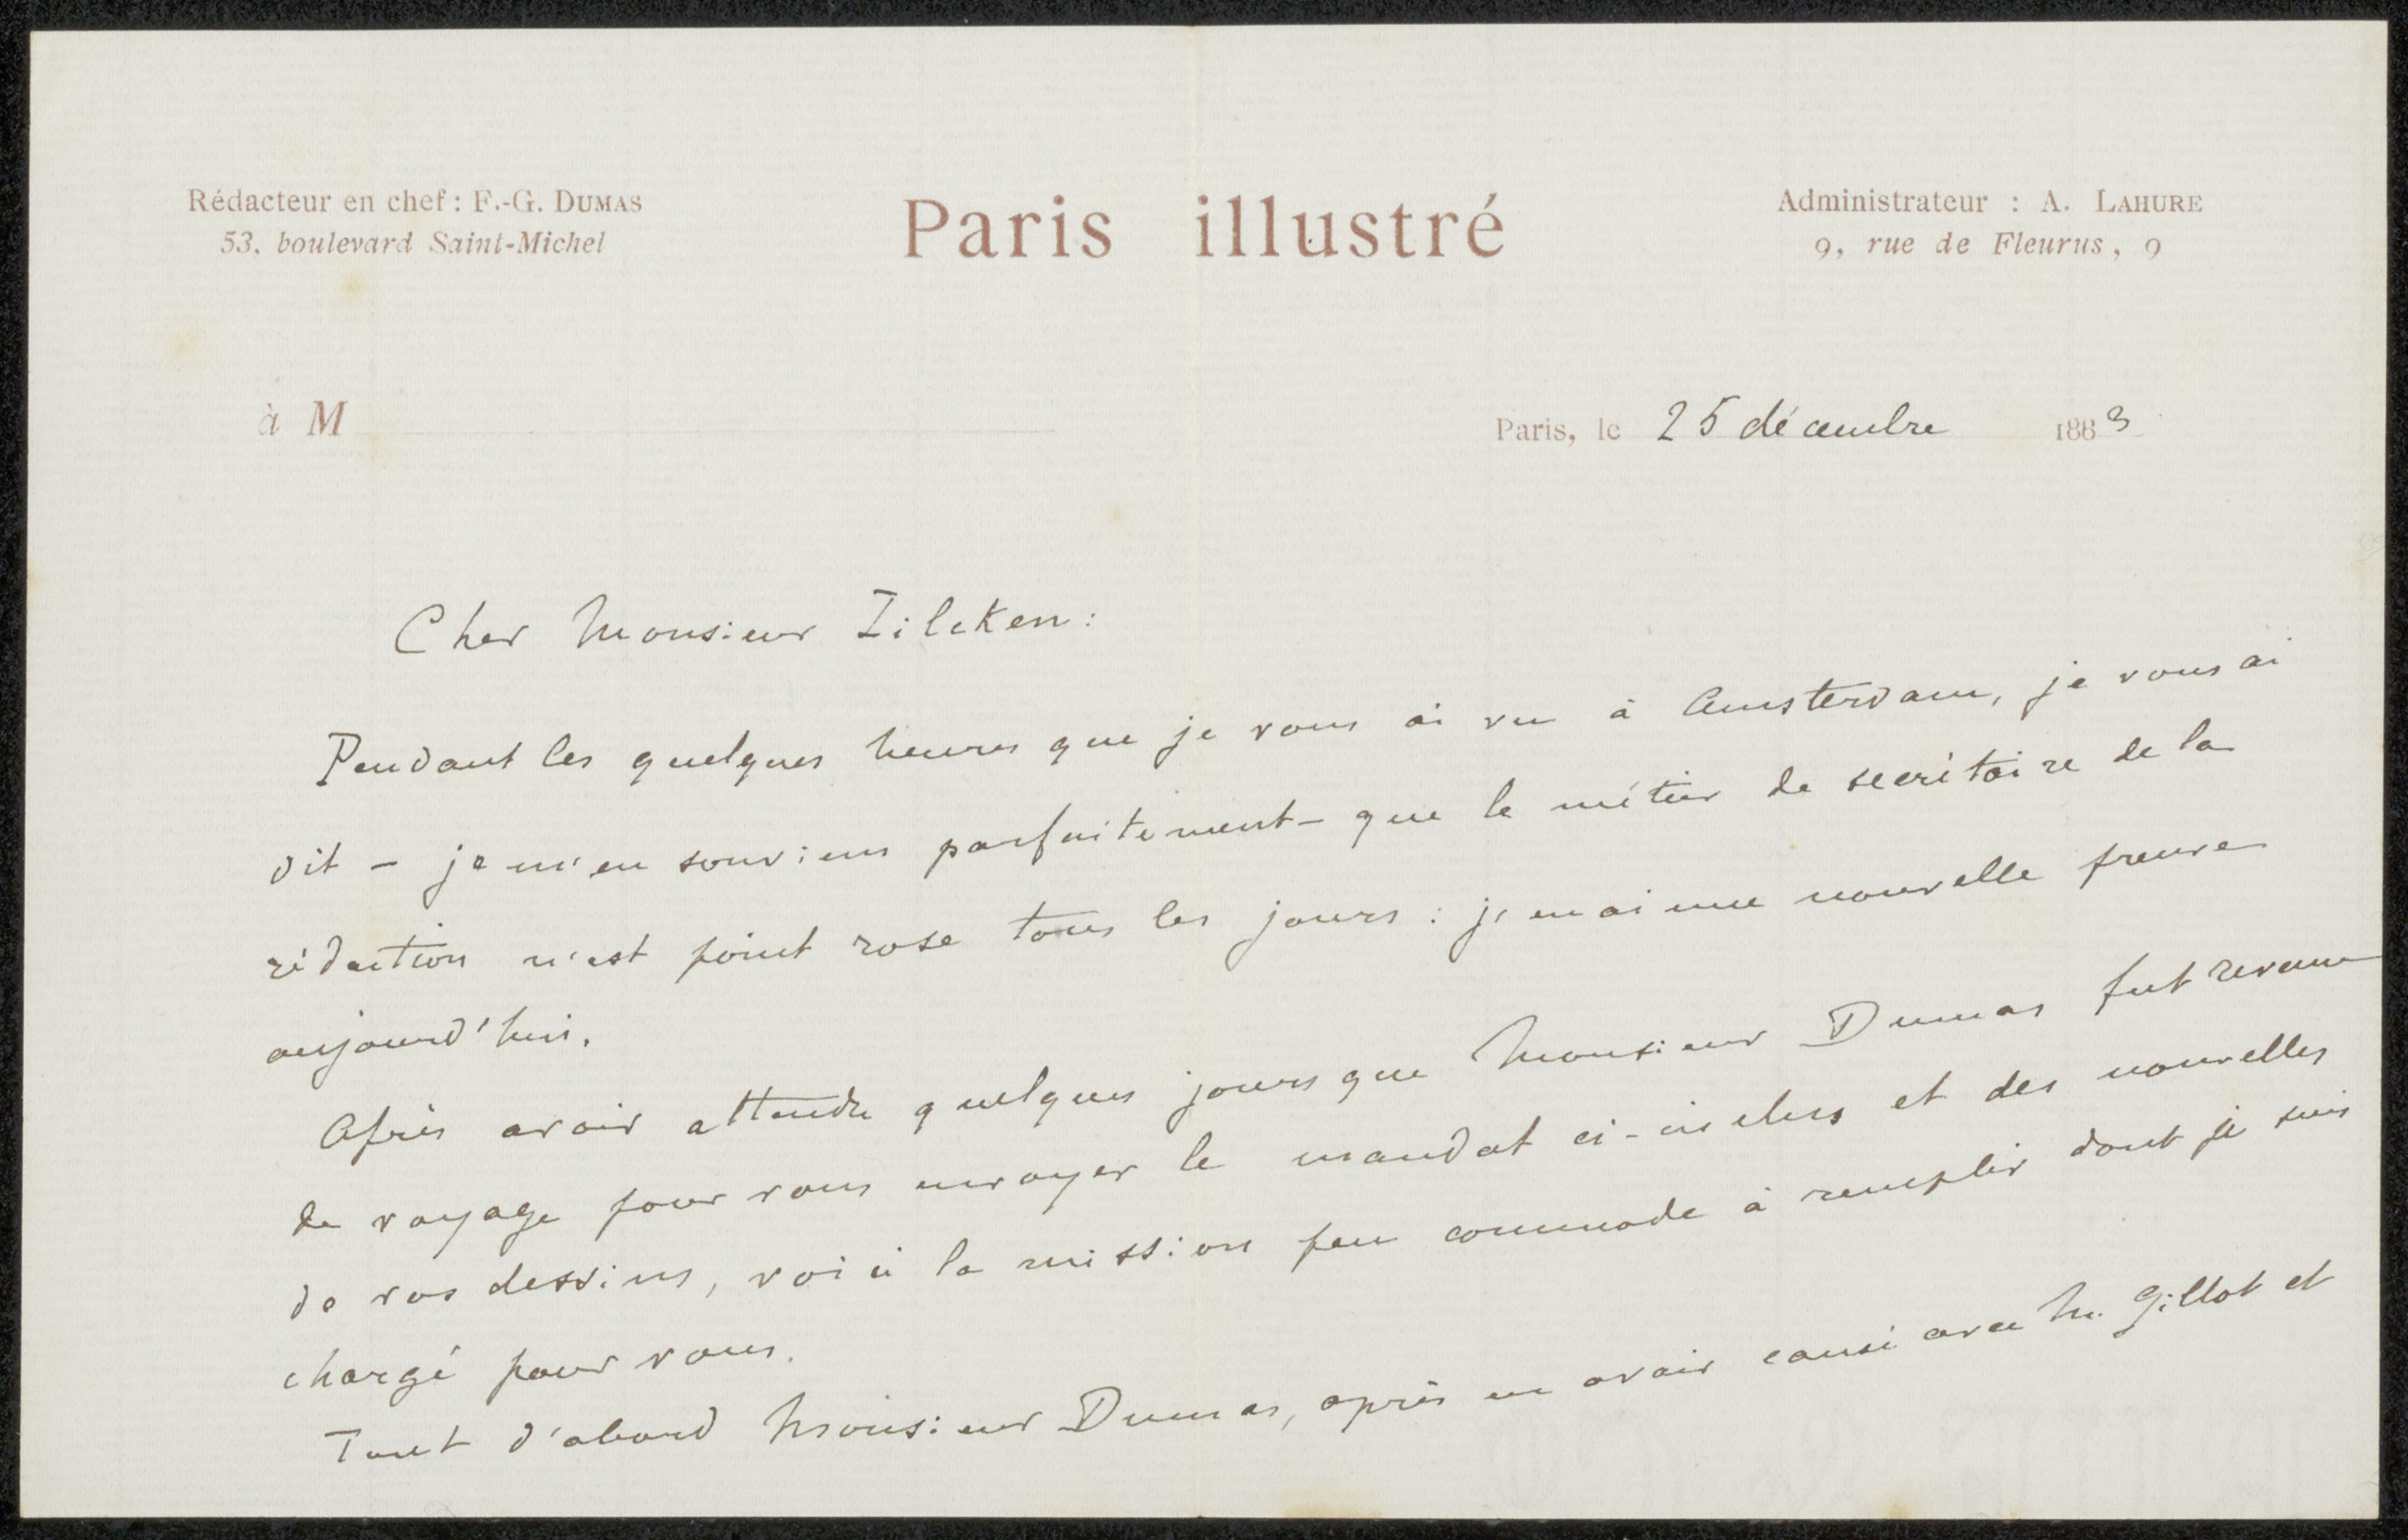 Rédacteur en chef : F.-G. DUMAS
53, boulevard Saint-Michel
Paris illustré
Administrateur : A. LAHURE
9, rue de Fleurus, 9
à M
Paris, le 25 décembre 1883
Cher Monsieur Zilcken :
Pendant les quelques heures que je vous ai vu à Amsterdam, je vous ai
dit – je m'en souviens parfaitement – que le métier de secrétaire de la
rédaction n'est point rose tous les jours : j'en ai une nouvelle preuve
aujourd'hui.
Après avoir attendu quelques jours que Monsieur Dumas fut revenu
de voyage pour vous envoyer le mandat ci-inclus et des nouvelles
de vos dessins, voici la mission peu commode à remplir dont je suis
chargé pour vous.
Tout d'abord Monsieur Dumas, après en avoir causé avec M. Gillot et